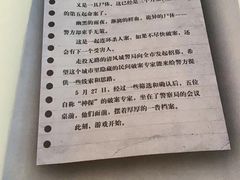 又是一具尸体，这已经是三个月
的第五起命案了。
幽黑的夜夜，飘洒的鲜血，诡异的尸体……
警方却束手无策。
这是一起连环杀人案，如果不尽快破案，还
会有下一个受害人。
走投无路的清风城警局向全市发起招募，希
望这个城市里隐藏的民间破案专家能来给警方提
供一些线索和思路。
5月27日，经过一些筛选和确认后，五位
自称“神探”的破案专家，坐在了警察局的会议
桌前，他们面前，摆着厚厚的一沓档案。
此刻，游戏开始。